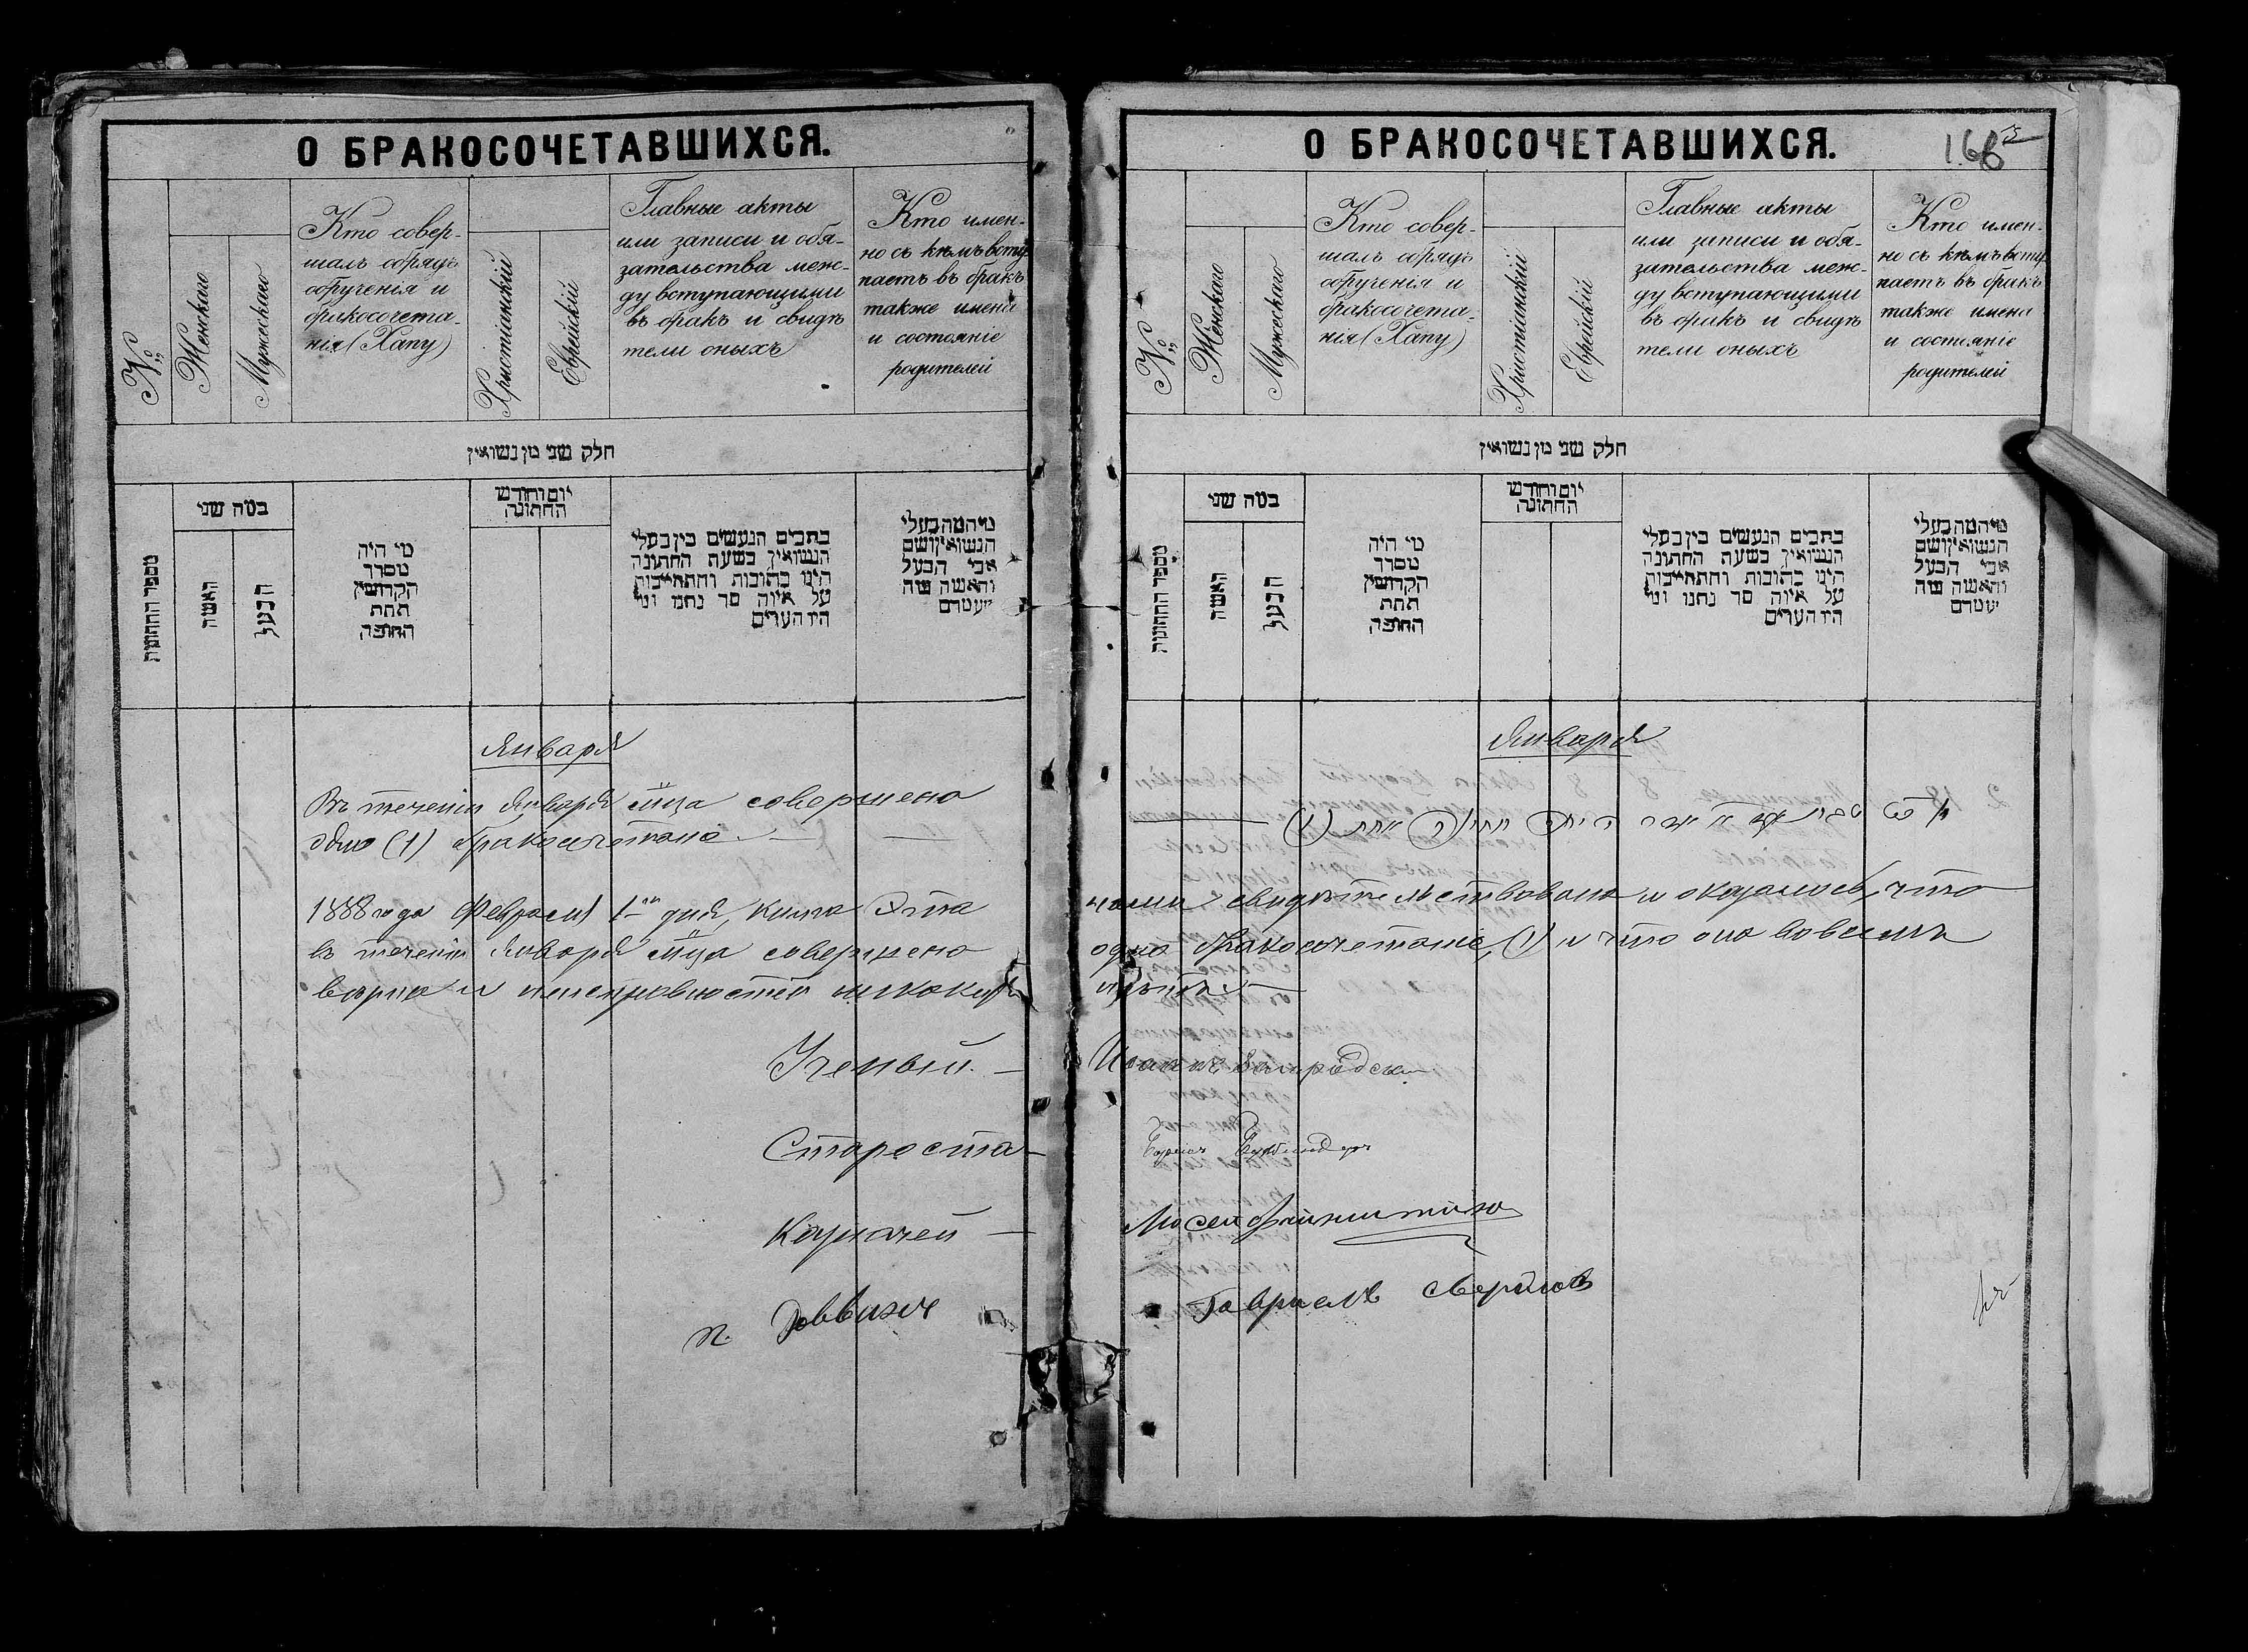 О БРАКОСОЧЕТАВШИХСЯ.
№
Женскаго
Мужескаго
Кто совер-
шалъ обрядъ
обрученія и
бракосочета-
нія (Хапу)
Христіанскій
Еврейскій
Главные акты
или записи и обя-
зательства меж-
ду вступающими
въ бракъ и свидѣ
тели оныхъ
Кто имен-
но съ кѣмъ всту
паетъ въ бракъ
также имена
и состояніе
родителей
חלק שני מן נשואין
מספר החתונות
כמה שני
האשה
הבעל
מי היה
מסדר
הקדושין
תחת
החופה
יום וחודש
החתונה
כתבים הנעשים בין בעלי
הנשואין בשעת החתונה
היינו כתובות והתחייבות
על איזה סך נתנו ומי
היו העדים
מי המה בעלי
הנשואין ושם
אבי הבעל
והאשה
Января
Въ теченіи Января м-ца совершено
одно (1) бракосочетание
1888 года Февраля 1 дня, книга Эта
въ теченіи Января м-ца совершено
вѣрна и неисправностей никакихъ
Ученый —
Староста —
Казначей —
О БРАКОСОЧЕТАВШИХСЯ.
№
Женскаго
Мужескаго
Кто совер-
шалъ обрядъ
обрученія и
бракосочета-
нія (Хапу)
Христіанскій
Еврейскій
Главные акты
или записи и обя-
зательства меж-
ду вступающими
въ бракъ и свидѣ
тели оныхъ
Кто имен-
но съ кѣмъ всту
паетъ въ бракъ
также имена
и состояніе
родителей
חלק שני מן נשואין
מספר החתונות
כמה שני
האשה
הבעל
מי היה
מסדר
הקדושין
תחת
החופה
יום וחודש
החתונה
כתבים הנעשים בין בעלי
הנשואין בשעת החתונה
היינו כתובות והתחייבות
על איזה סך נתנו ומי
היו העדים
מי המה בעלי
הנשואין ושם
אבי הבעל
והאשה
Января
нами свидѣтельствована и оказалось, что
одно бракосочетаніе (1) и что она во всемъ
Гавріелъ Свердловъ